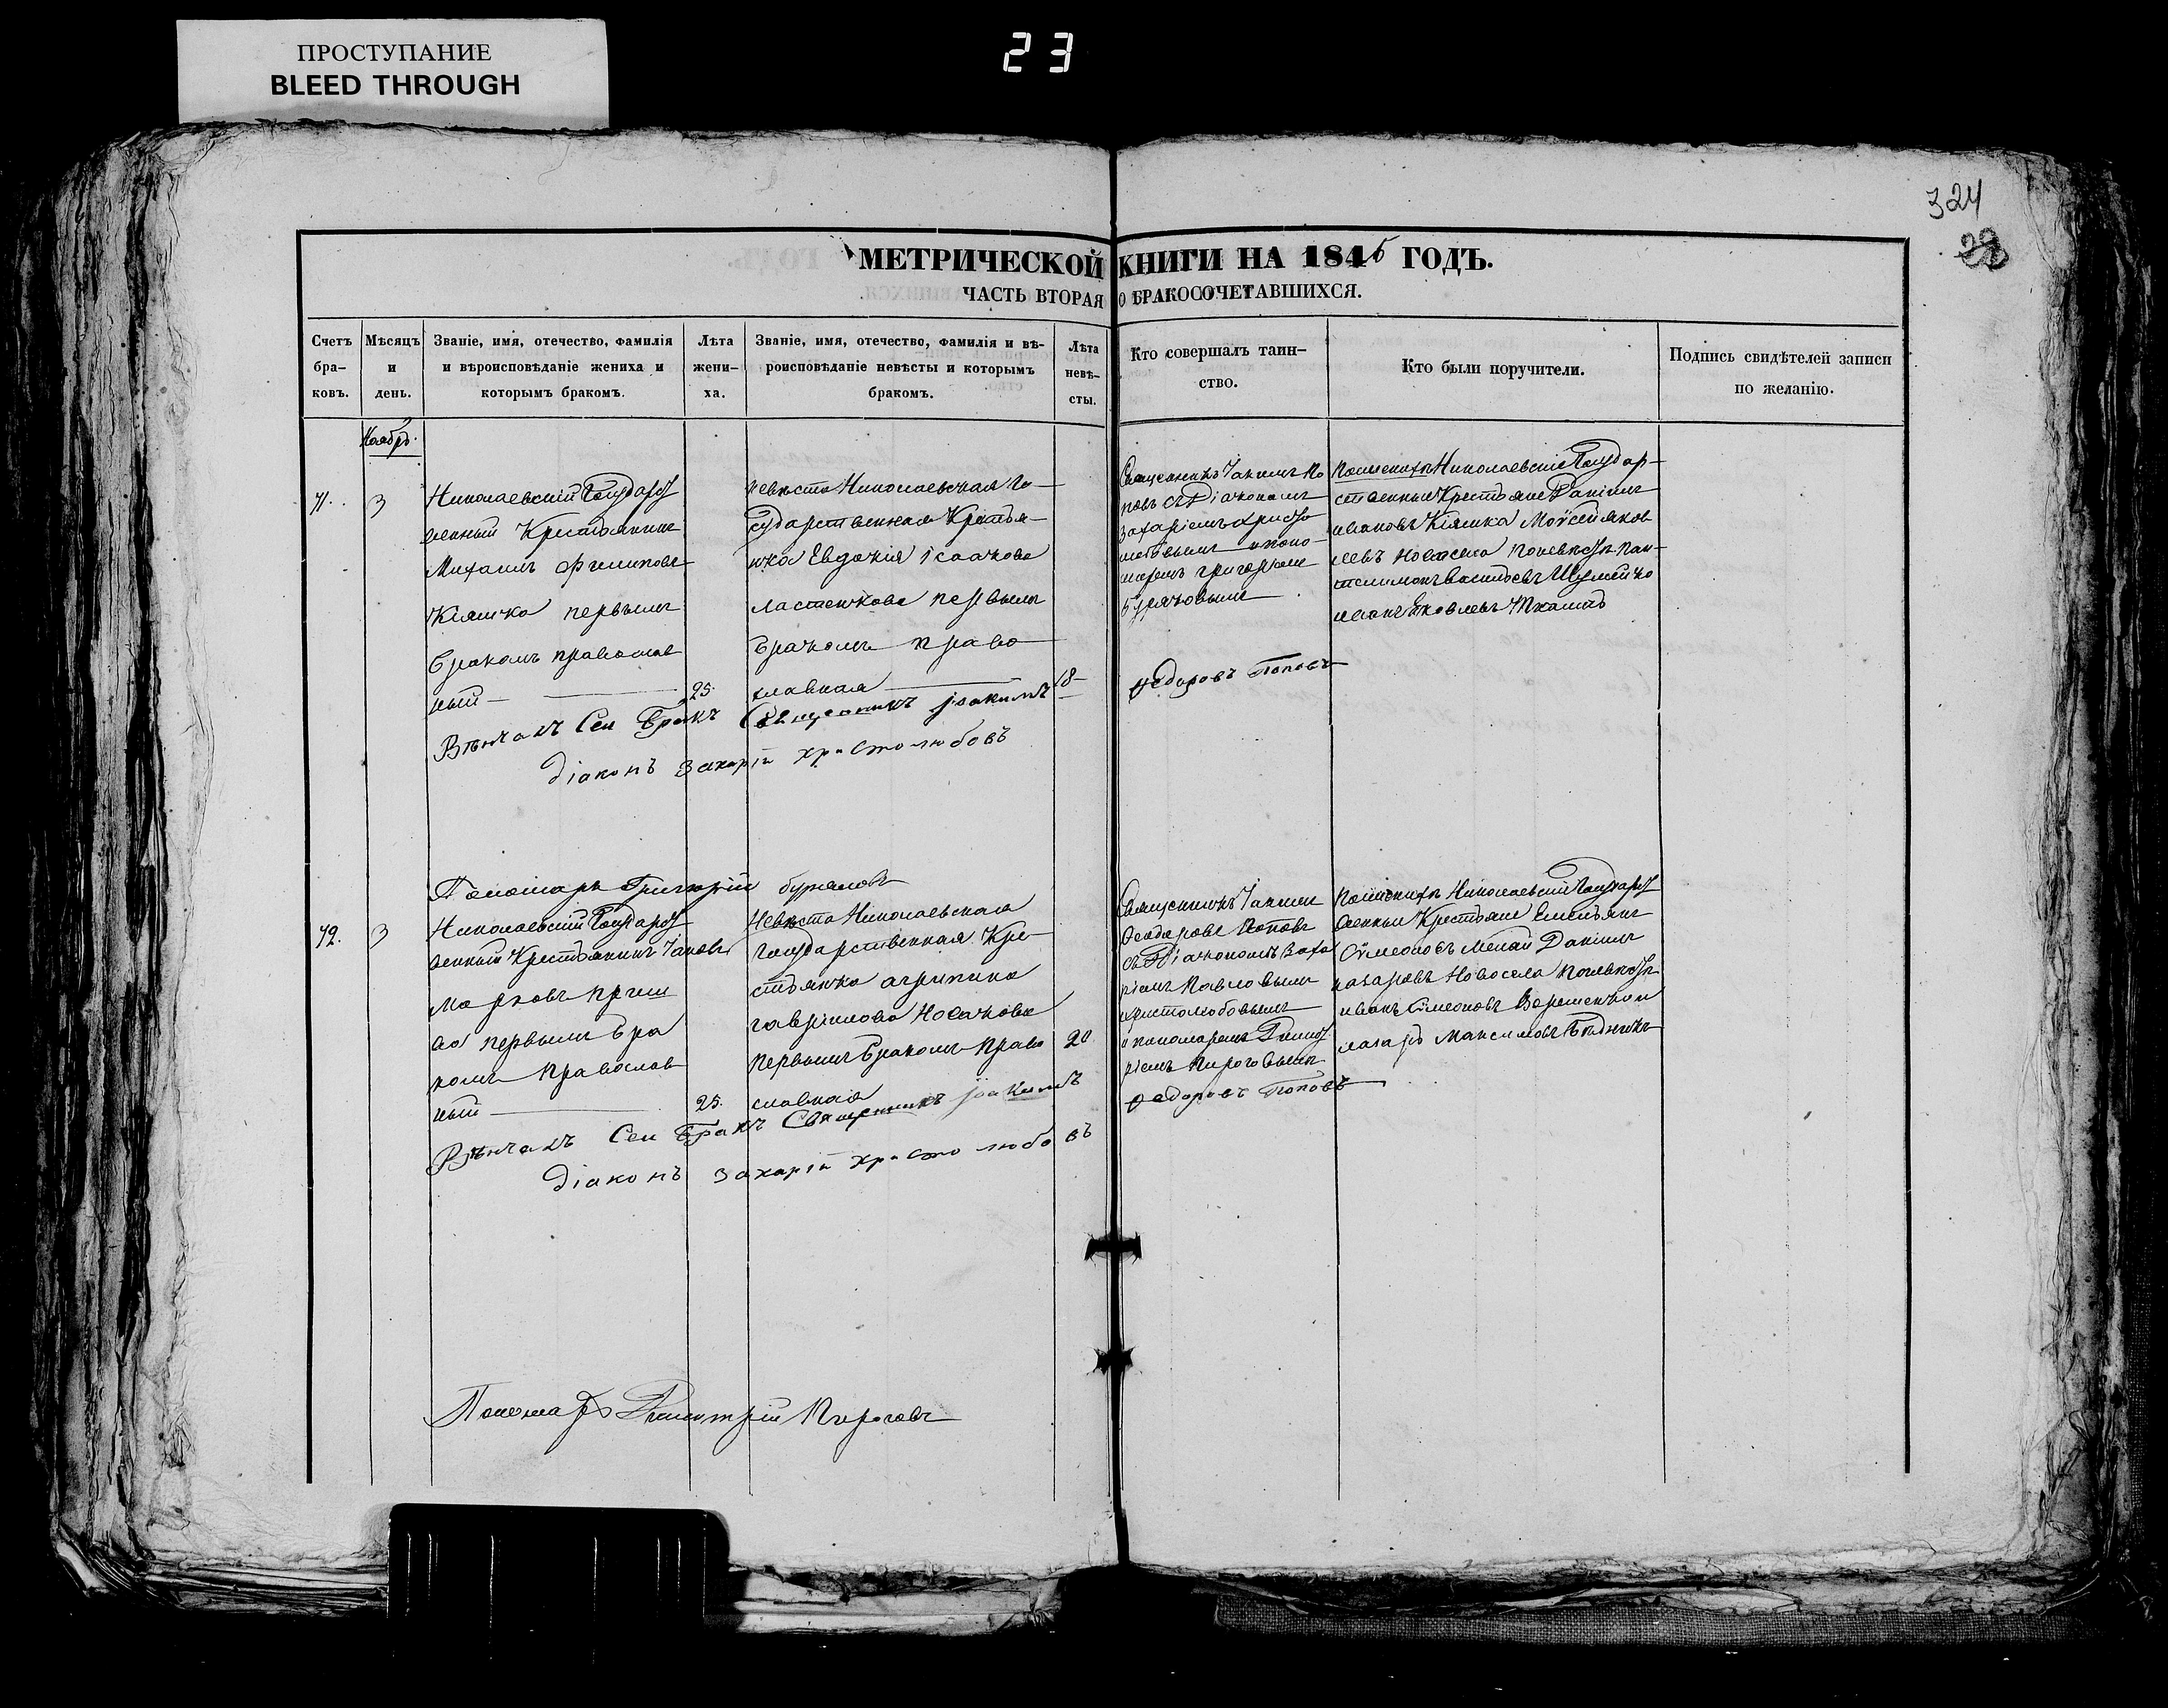 ПРОСТУПАНИЕ
BLEED THROUGH
23
324
22
МЕТРИЧЕСКОЙ КНИГИ НА 1845 ГОДЪ.
ЧАСТЬ ВТОРАЯ О БРАКОСОЧЕТАВШИХСЯ.
Счетъ бра-
ковъ.
Мѣсяцъ
и
день.
Званіе, имя, отечество, фамилія
и вѣроисповѣданіе жениха и
которымъ бракомъ.
Лѣта
жени-
ха.
Званіе, имя, отечество, фамилія и вѣ-
роисповѣданіе невѣсты и которымъ
бракомъ.
Лѣта
невѣ-
сты.
Кто совершалъ таин-
ство.
Кто были поручители.
Подпись свидѣтелей записи
по желанію.
Ноябрь.
71.
3
Николаевскій Государст
венный Крестьянинъ
Михаилъ Филиповъ
Кіяшко первымъ
бракомъ православ
ный
25.
невѣста Николаевская Го-
сударственная Крестья-
нка Евдокія Ісаакова
Ластенкова первымъ
бракомъ право
славная
18
Священникъ Іакимъ По
повъ съ Діакономъ
Захаріемъ Христо
любовымъ и поно-
маремъ Григоріем
Федоровъ Поповъ
Николаевскіе Государ-
ственные Крестьяне Даніилъ
Ивановъ Кіяшко Моѵсей Яков
левъ по невѣстѣ Пан-
телимонъ Васильевъ
Иванъ Яковлевъ
Вѣнчалъ Сей Бракъ Священникъ Іоакимъ
Діаконъ Захарій Христолюбовъ
Пономарь Григорій
72.
3
Николаевскій Государст
венный Крестьянинъ Іаковъ
Марковъ
первымъ бра
комъ православ
ный
25.
Невѣста Николаевская
Государственная Кре
стьянка Агрипина
Гаврілова Носачова
первымъ бракомъ право
славная
20
Священникъ Іакимъ
Феодоровъ Поповъ
съ Діакономъ Заха
ріемъ Павловымъ
Христолюбовымъ
и пономаремъ Димит
ріемъ Пироговымъ
Федоровъ Поповъ
Николаевскіе Государст
венные Крестьяне Емельянъ
Сѵмеоновъ Даніилъ
Назаровъ Новосела по невѣстѣ
Иванъ Сѵмеоновъ
Лазарь Максимовъ Бѣдникъ
Вѣнчалъ Сей Бракъ Священникъ Іоакимъ
Діаконъ Захарій Христолюбовъ
Пономарь Димитрій Пироговъ